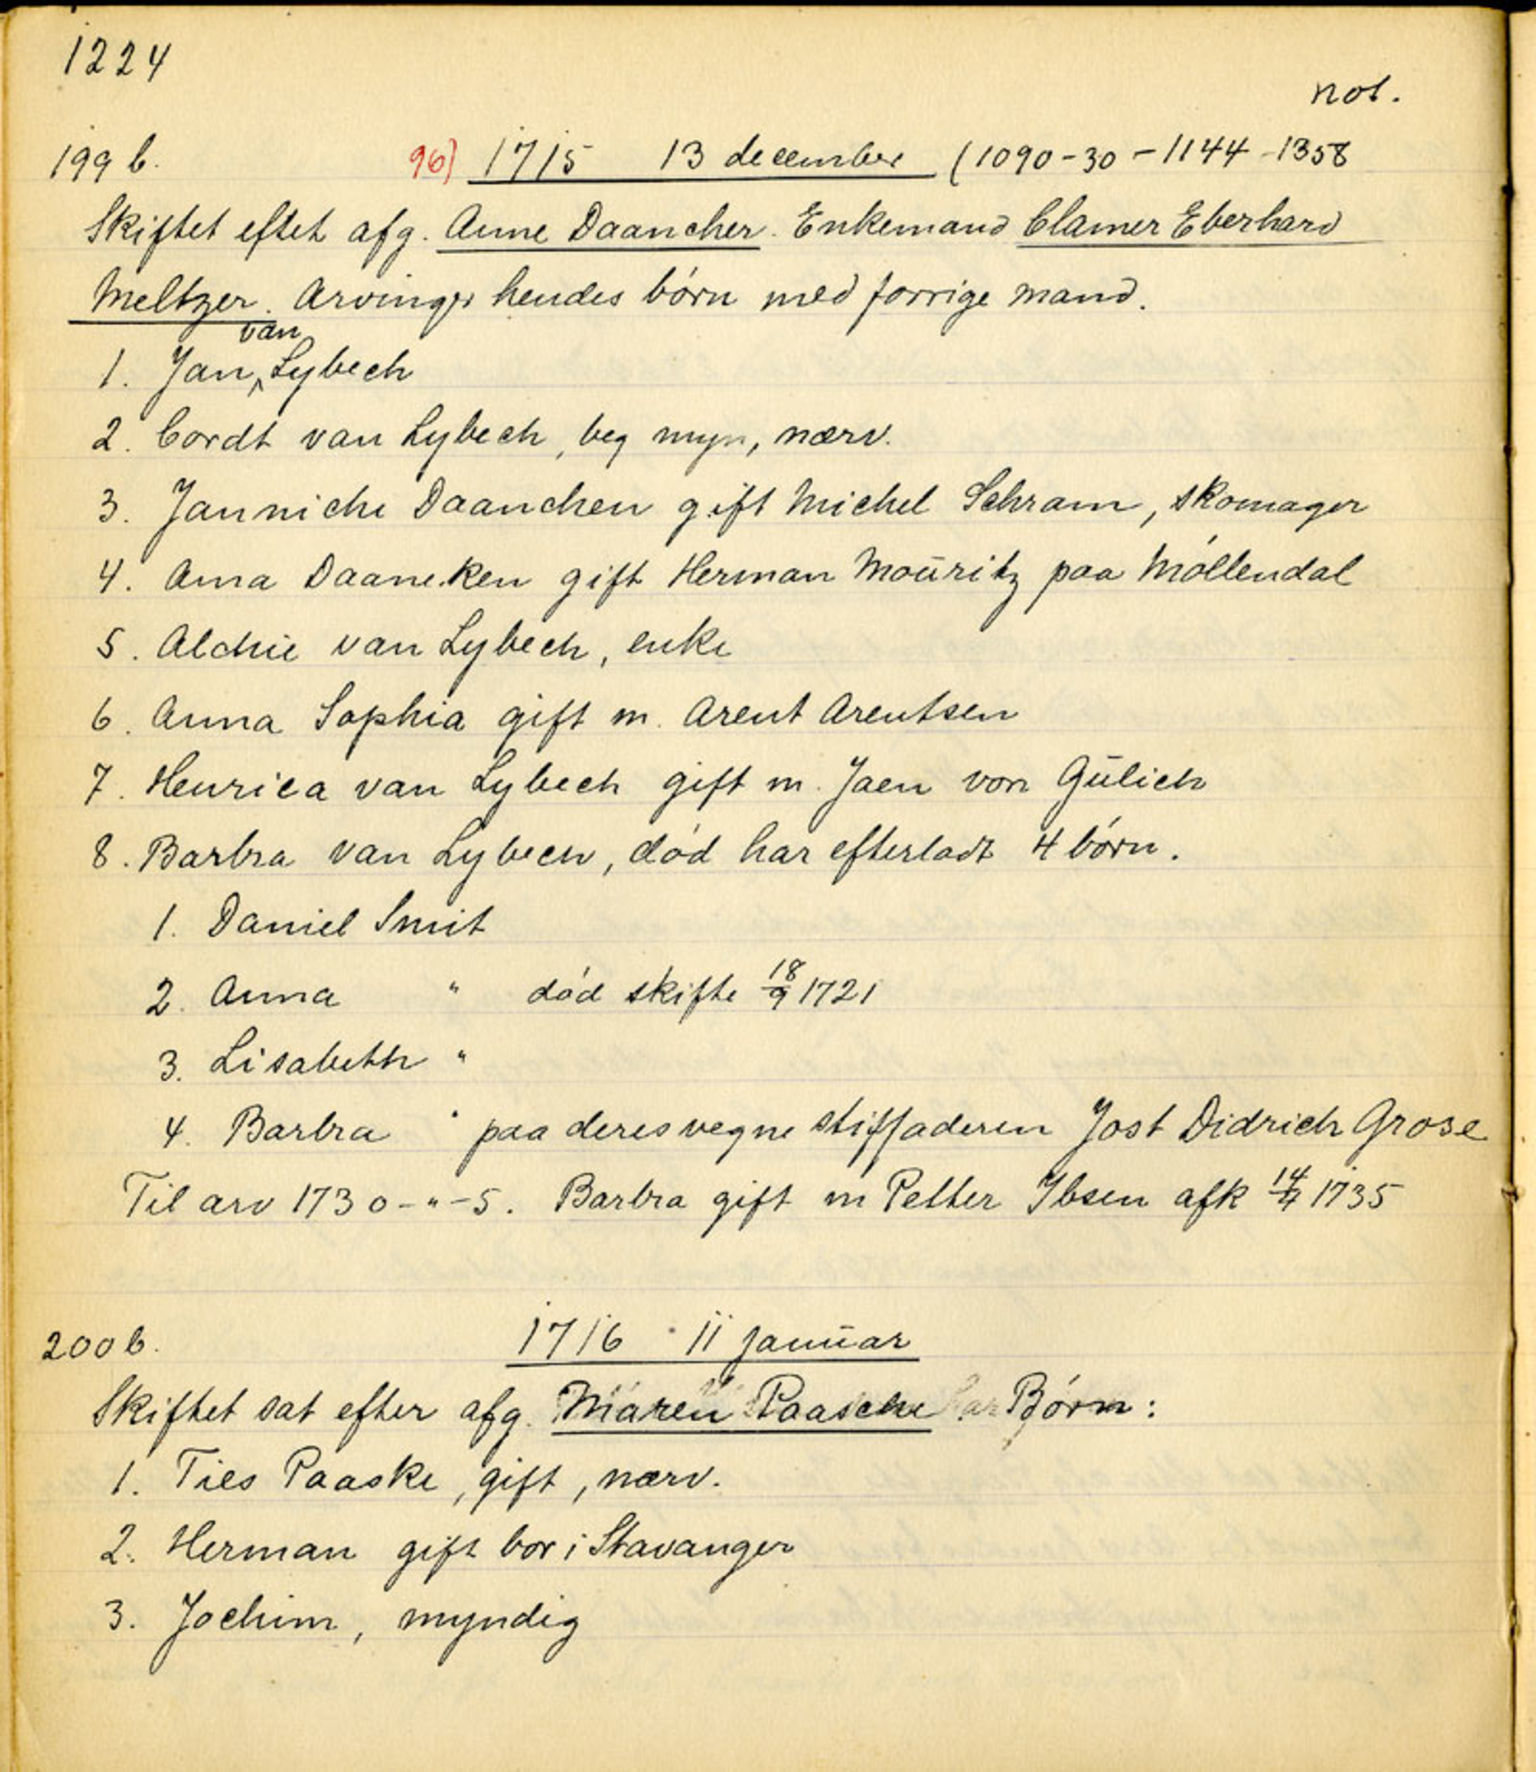 1224
not.
199 b. 96) 1715 13 december (1090-30-1144-1358
Skiftet eftet afg. Anne Daancher. Enkemand Clamer Eberhard
Meltzer. Arvinger hendes børn med forrige mand.
1. Jan van Lybech
2. Cordt van Lybech, beg myn, nærv.
3. Janniche Daanchen gift Michel Schram, skomager
4. Anna Daaneken gift Herman Mouritz paa Møllendal
5. Alchie van Lybech, enke
6. Anna Sophia gift m. Arent Arentsen
7. Henrica van Lybech gift m. Jaen von Gulich
8. Barbra van Lybech, død har efterladt 4 børn.
1. Daniel Smit
2. Anna " død skifte 18/9 1721
3. Lisabeth "
4. Barbra " paa deres vegne stiffaderen Jost Didrich Grose
Til arv 1730-"-5. Barbra gift m Petter Ibsen afk 14/7 1735
200 b. 1716 11 januar
Skiftet sat efter afg. Maren Paasche har Børn:
1. Ties Paaske, gift, nærv.
2. Herman gift bor i Stavanger
3. Jochim, myndig